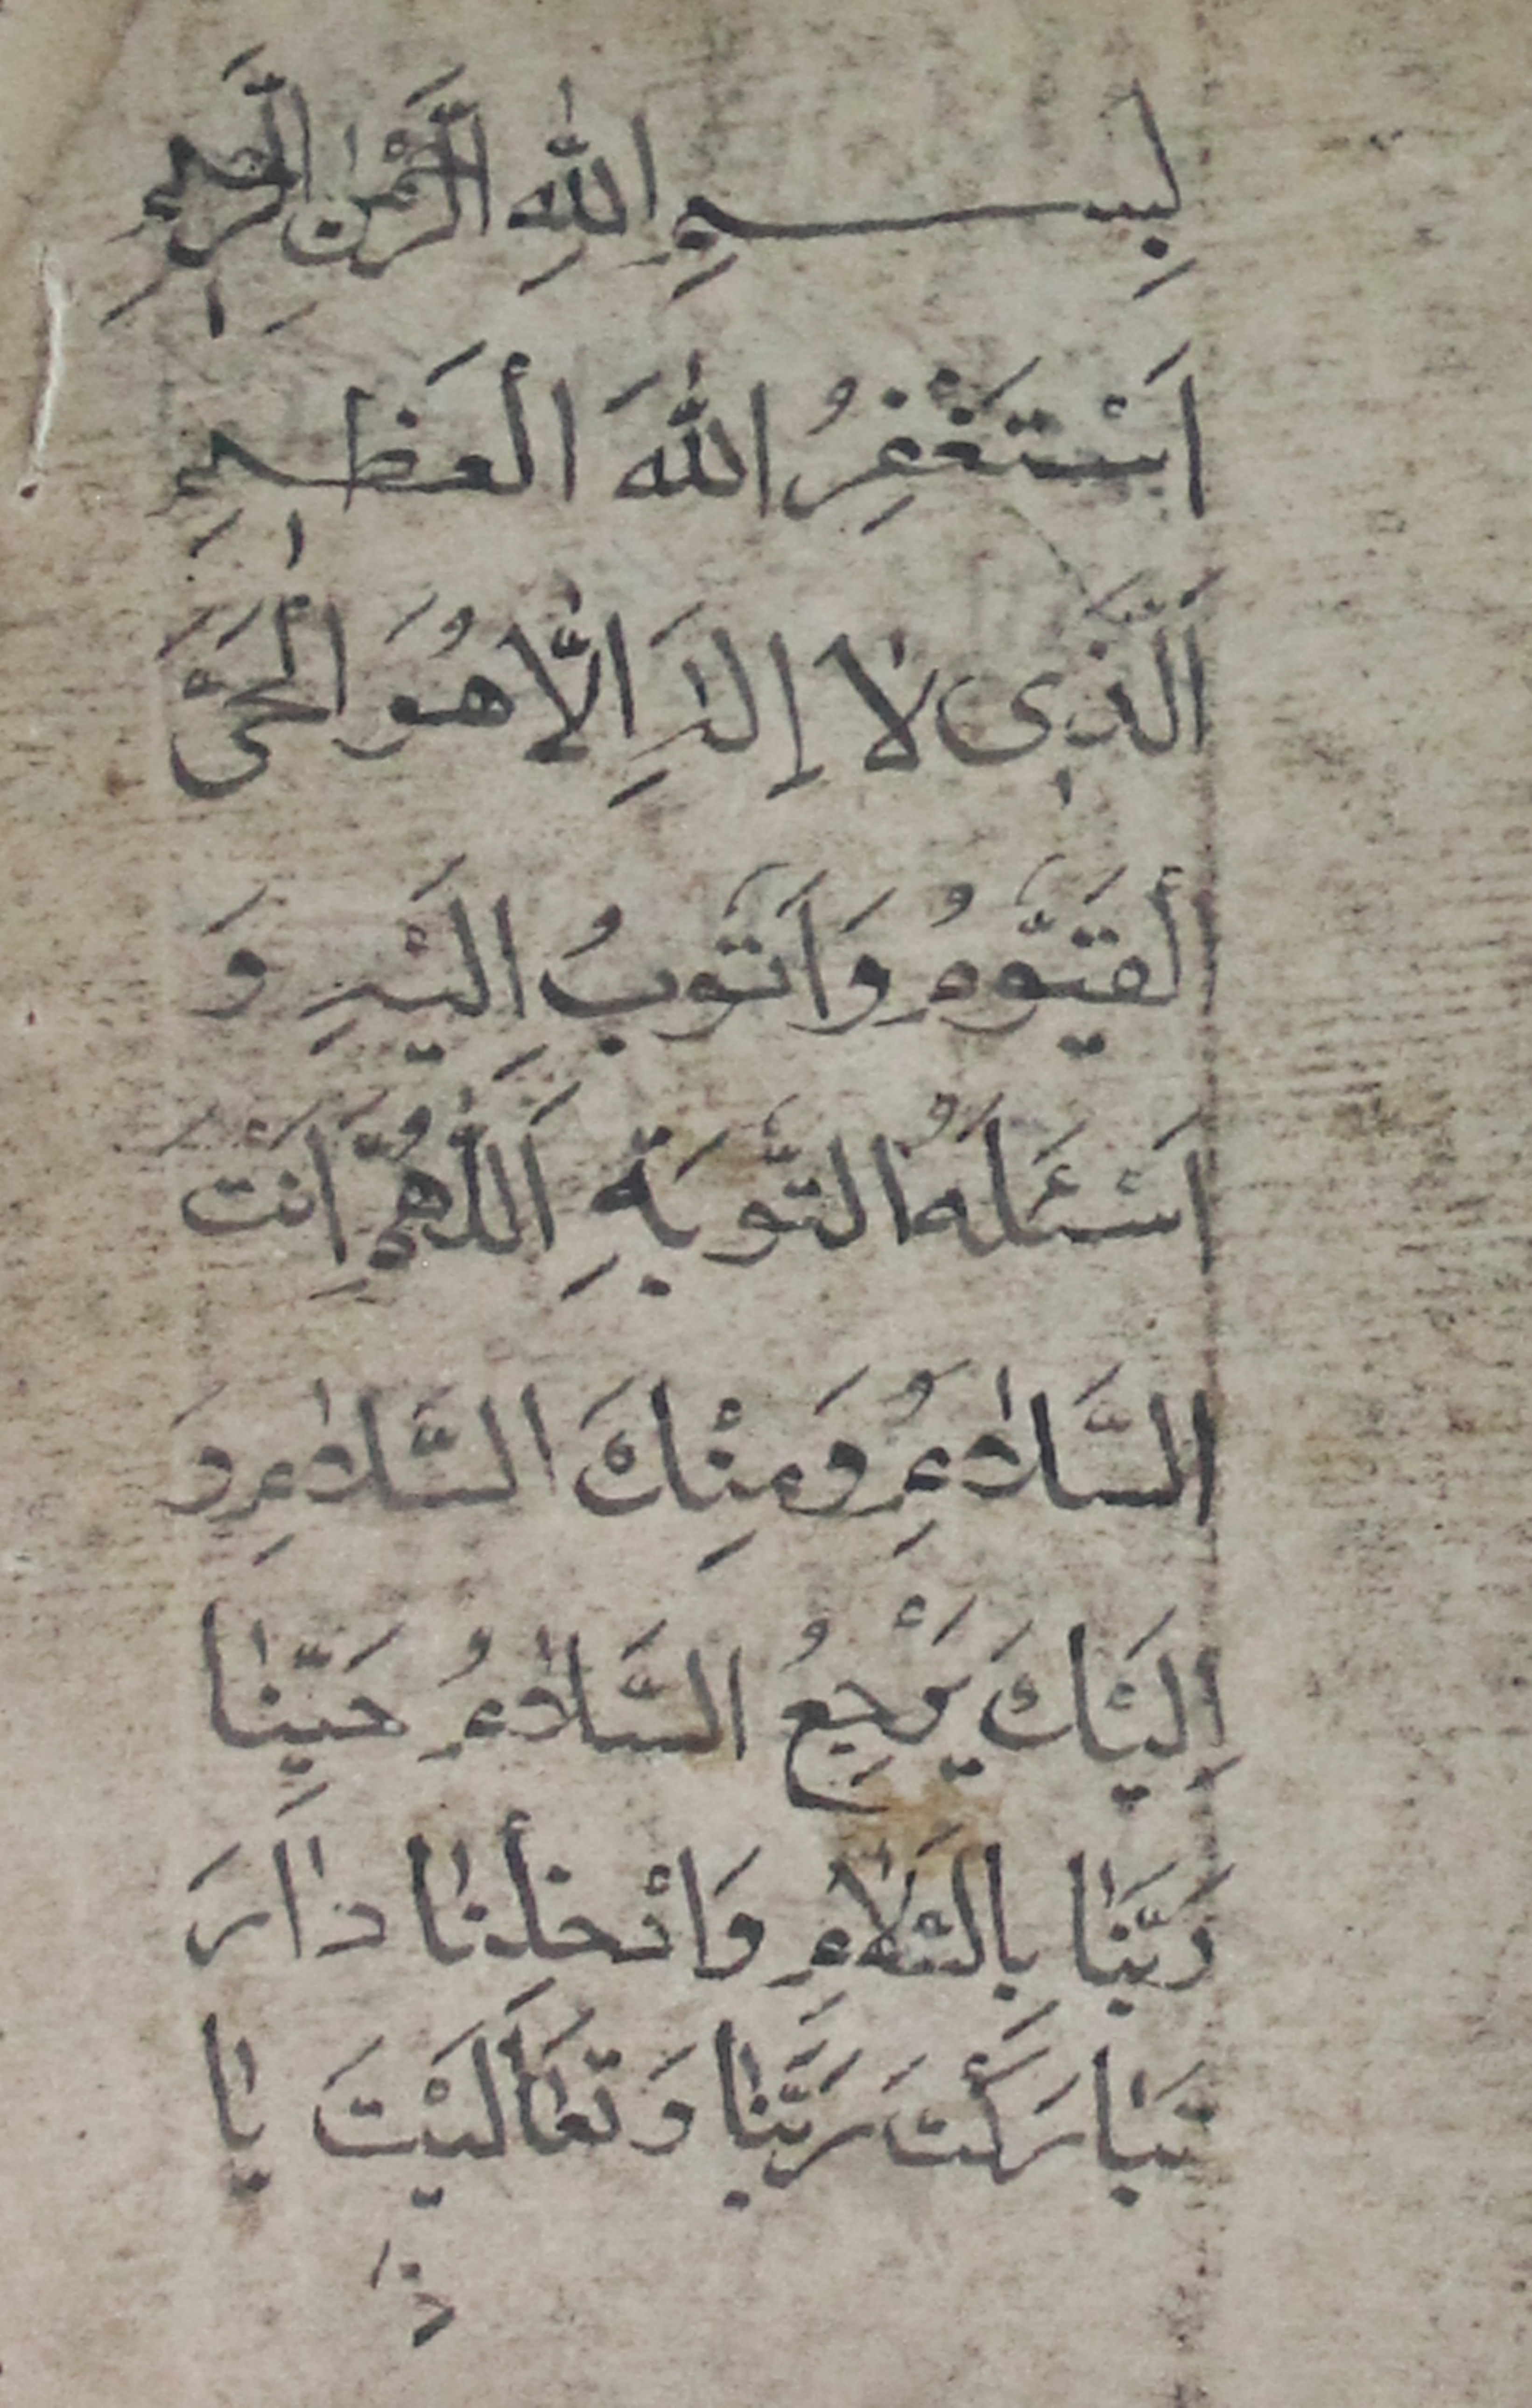 بِسْمِ اللّٰهِ الرَّحْمٰنِ الرَّحِيمِ
اَسْتَغْفِرُ اللّٰهَ اَلْعَظِيمِ
اَلَّذِى لَا إِلٰهَ اِلَّا هُوَ الْحَىَّ
اَلْقَيُّومُ وَاَتُوبُ اِلَيْهِ وَ
اَسْئَلُهُ التَّوْبَةِ اَللّٰهُمَّ اَنْتَ
السَّلَامُ وَمِنْكَ السَّلَامِ وَ
اِلَيْكَ يَرْجِعُ السَّلَامُ حَيِّنَا
رَبَّنَا بِالسَّلَامِ وَاَدْخِلْنَا دَارَ
تَبَارَكْتَ رَبَّنَا وَتَعَالَيْتَ يَا
ذَا